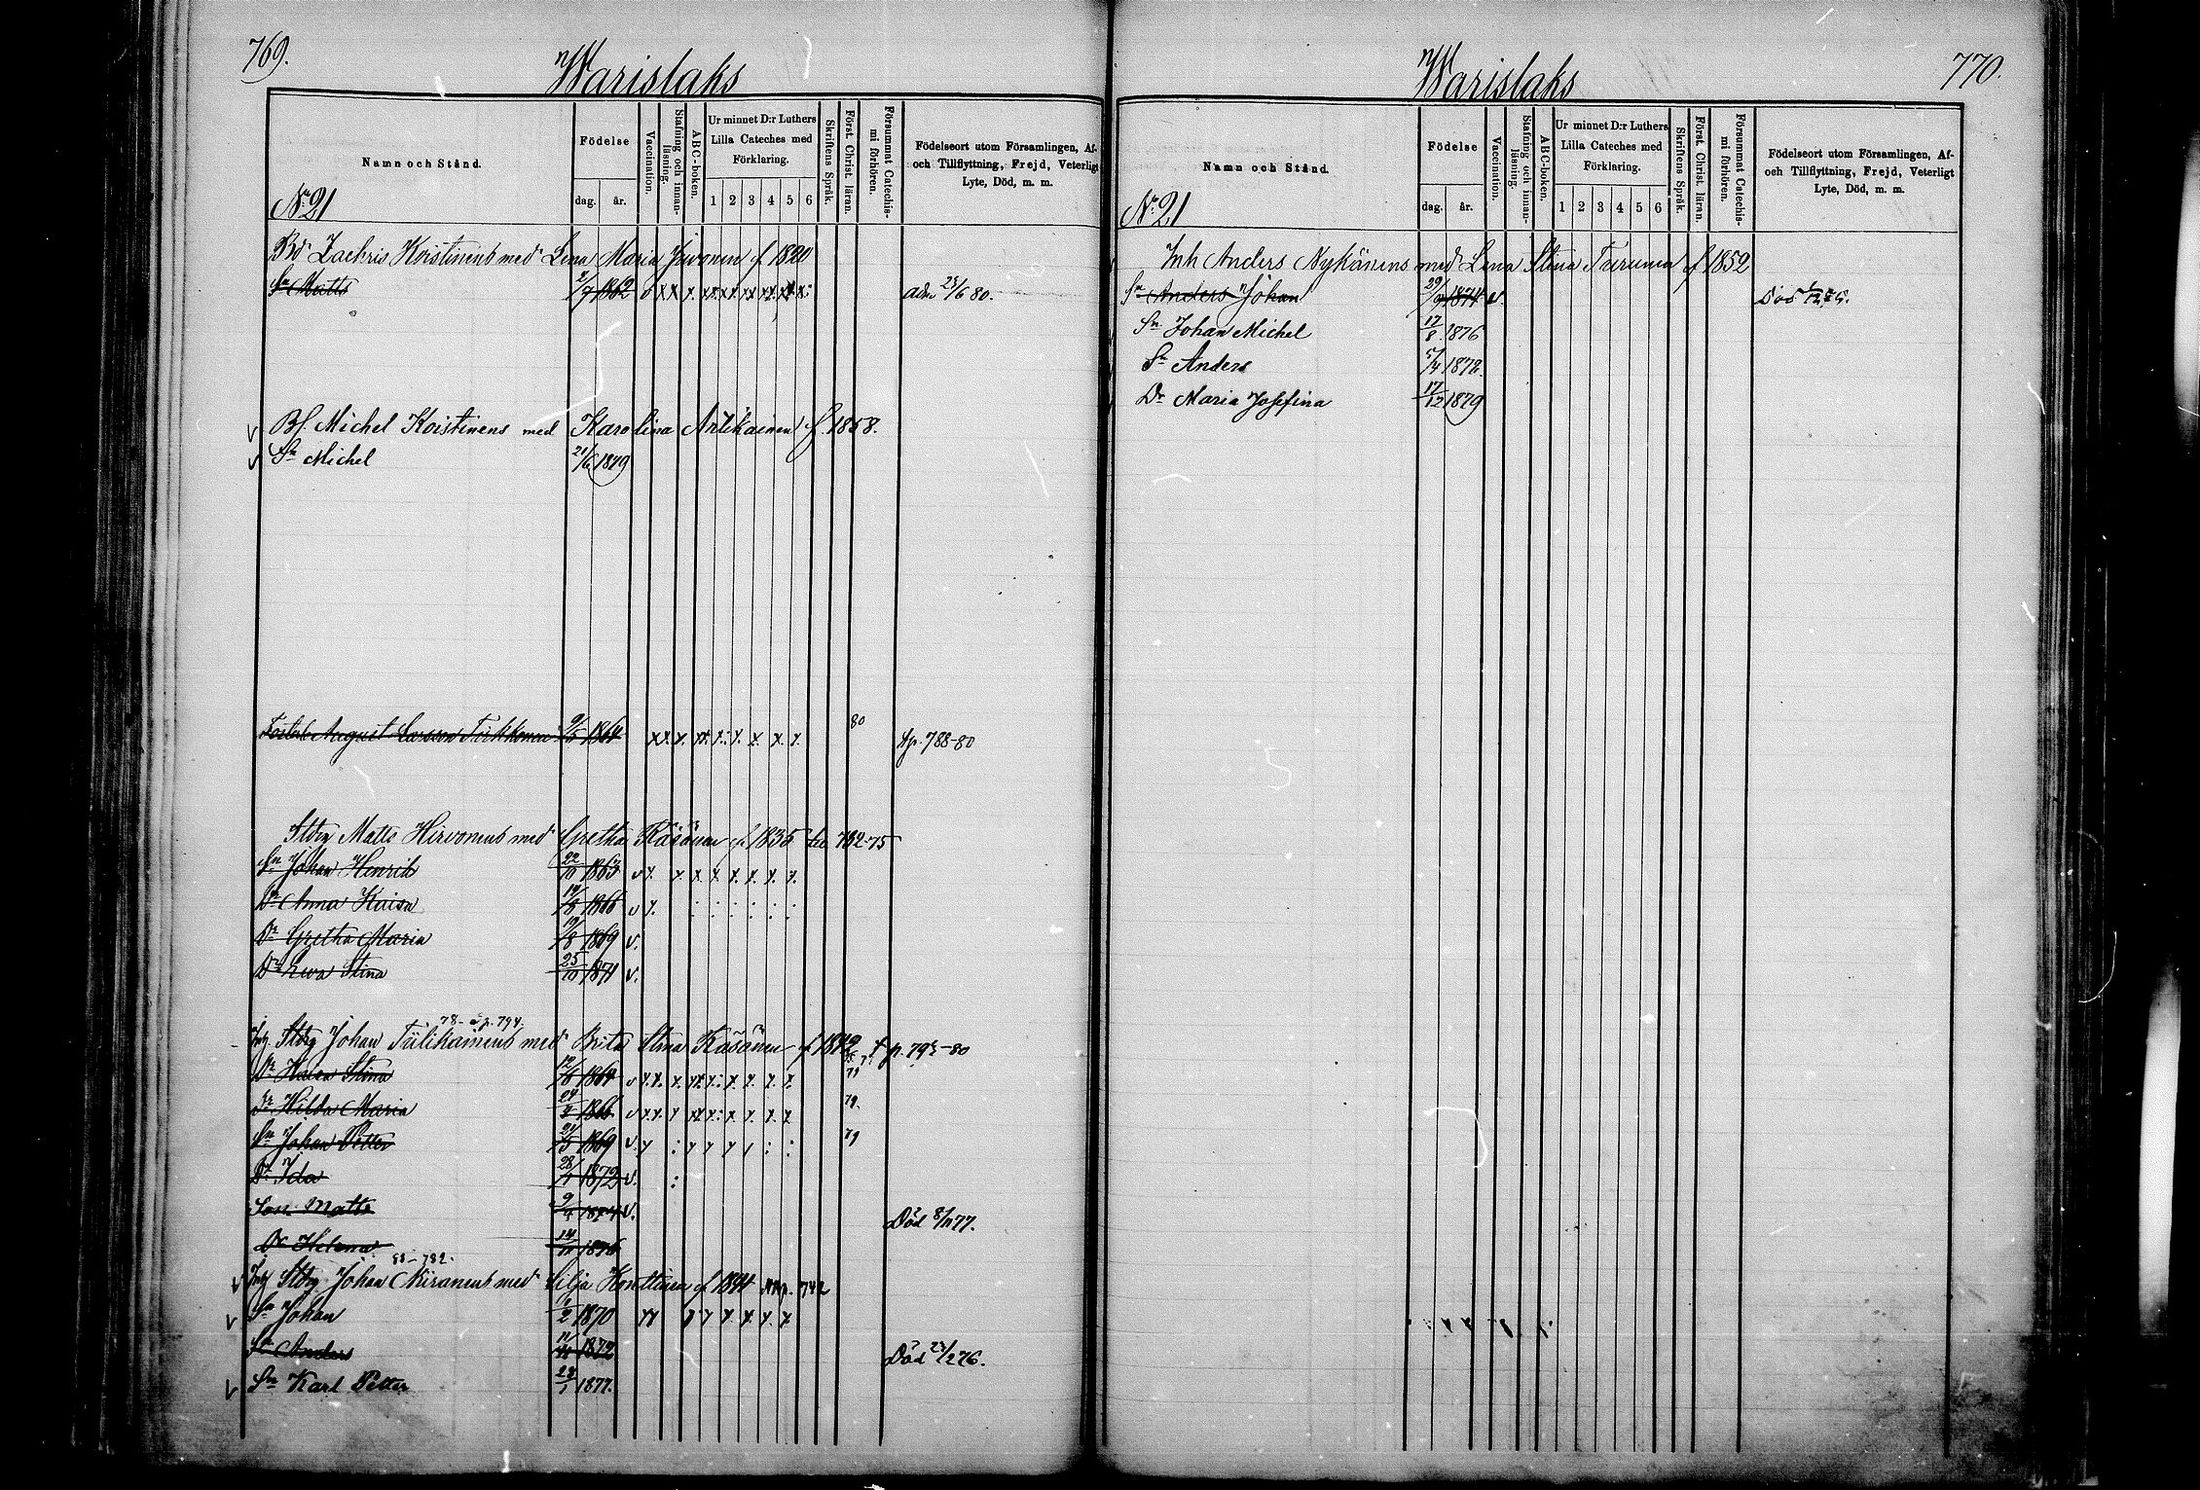 769.
Warislaks
Namn och Stånd.
Födelse
dag.
år.
Vaccination.
Stafning och innan-läsning.
ABC-boken.
Ur minnet D:r Luthers
Lilla Cateches med
Förklaring.
1 2 3 4 5 6
Skriftens Språk.
Först. Christ. läran.
Försummat Catechis-mi förhören.
Födelseort utom Församlingen, Af-
och Tillflyttning, Frejd, Veterligt
Lyte, Död, m. m.
No 21
Bd Zachris Koistinens med Lena Maria f 1820
Sn Matts 2/7 1862 v x x x. adm 23/6 80.
Bf. Michel Koistinens med Karolina f. 1858.
Sn Michel 21/6 1879
August Larsson 1864 80 p. 788-80
Matts Hirvonens med Gretha Räsänen f 1835 782-75
Sn Johan Henrik 22/10 1863 v x. x x x x. x. x.
Dr Anna Kaisa 1866 v x. : : : : : :
Dr Gretha Maria 19/8 1869 v.
Dr Ewa Stina 25/10 1871 v.
78- p. 794.
Johan Tiilikainens med Brita Stina Räsänen p. 794-80
Dr Stina 12/8 1864 v x. x. x. 79
Dr Hilda Maria 1866 v x x. x 79.
Sn Johan Petter 1869 v. 79
Dr Ida 28/ 1872 v. :
Son Matts 9/4 1874 v. Död 8/11 77.
Dr Helena 1876
80-782.
Johan Miranens med Silja Konttinen f 1844 p. 742
Sn Johan 1870
Sn Anders 1872 Död 23/2 76.
Sn Karl Petter 1877.
770.
Warislaks
Namn och Stånd.
Födelse
dag.
år.
Vaccination.
Stafning och innan-läsning.
ABC-boken.
Ur minnet D:r Luthers
Lilla Cateches med
Förklaring.
1 2 3 4 5 6
Skriftens Språk.
Först. Christ. läran.
Försummat Catechis-mi förhören.
Födelseort utom Församlingen, Af-
och Tillflyttning, Frejd, Veterligt
Lyte, Död, m. m.
No 21
Inh Anders Nykänens med Lena Stina f 1852
Sn Anders Johan 29/9 1874 v. Död
Sn Johan Michel 17/8 1876
Sn Anders 5/4 1878.
Dr Maria Josefina 17/12 1879